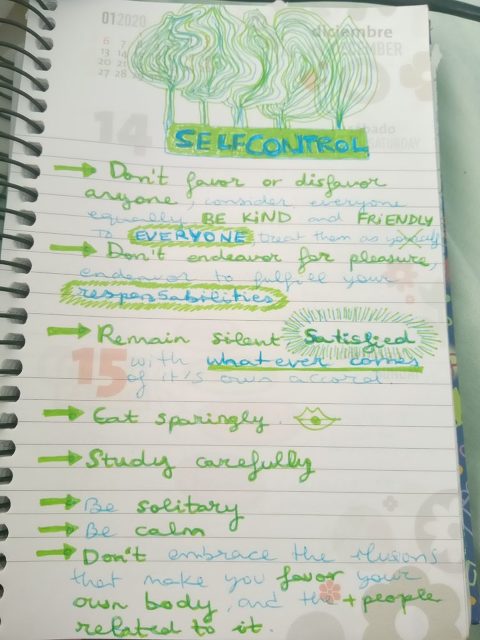 01 2020
diciembre
DECEMBER
6 7
13 14
20 21
27 28
14
sábado
SATURDAY
SELFCONTROL
Don't favor or disfavor
anyone, consider everyone
equally, BE KiND and FRiENDLY
To EVERYONE treat them as yourself
Don't endeavor for pleasure,
endeavor to fulfill your
responsabilities
Remain silent Satisfied
15 with whatever comes
of it's own accord.
Eat sparingly.
Study carefully
Be solitary
Be calm
Don't embrace the illusions
that make you favor your
own body, and the + people
related to it.